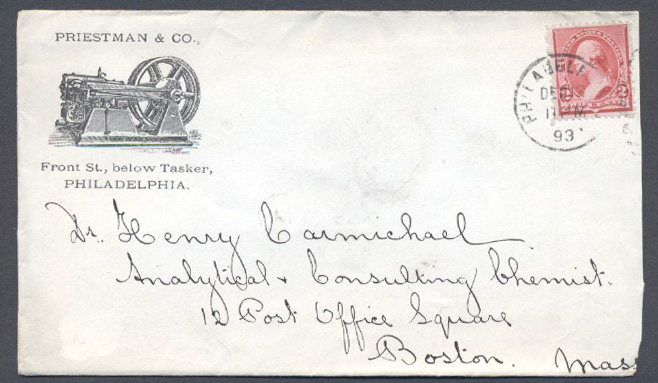 PRIESTMAN & CO.,
Front St., below Tasker,
PHILADELPHIA.
PHILADEL
DEC
93
2
Dr. Henry Carmichael
Analytical & Consulting Chemist.
12 Post Office Square
Boston. Mass